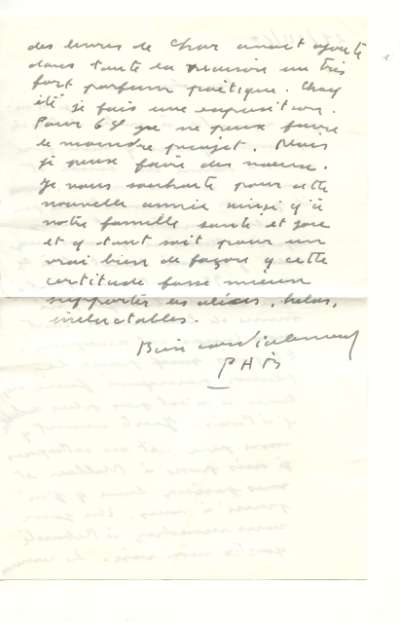 des livres de Char avait ajouté
dans toute la maison un très
fort parfum poétique. Chaque
été je fais une exposition.
Pour 68 je ne peux faire
le moindre projet. Mais
je peux faire des vœux.
Je vous souhaite pour cette
nouvelle année ainsi qu'à
votre famille santé et joie
et q tout soit pour un
vrai bien de façon q cette
certitude fasse mieux
supporter les aléas, hélas,
inéluctables.
Bien cordialement
PAB